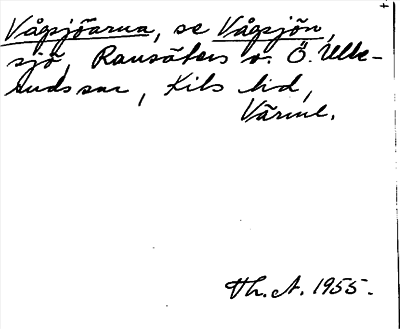 Vågsjöarna, se Vågsjön,
sjö, Ransäters o. Ö. Ulle-
ruds snr, Kils hd,
Värml.
Th. A. 1955.